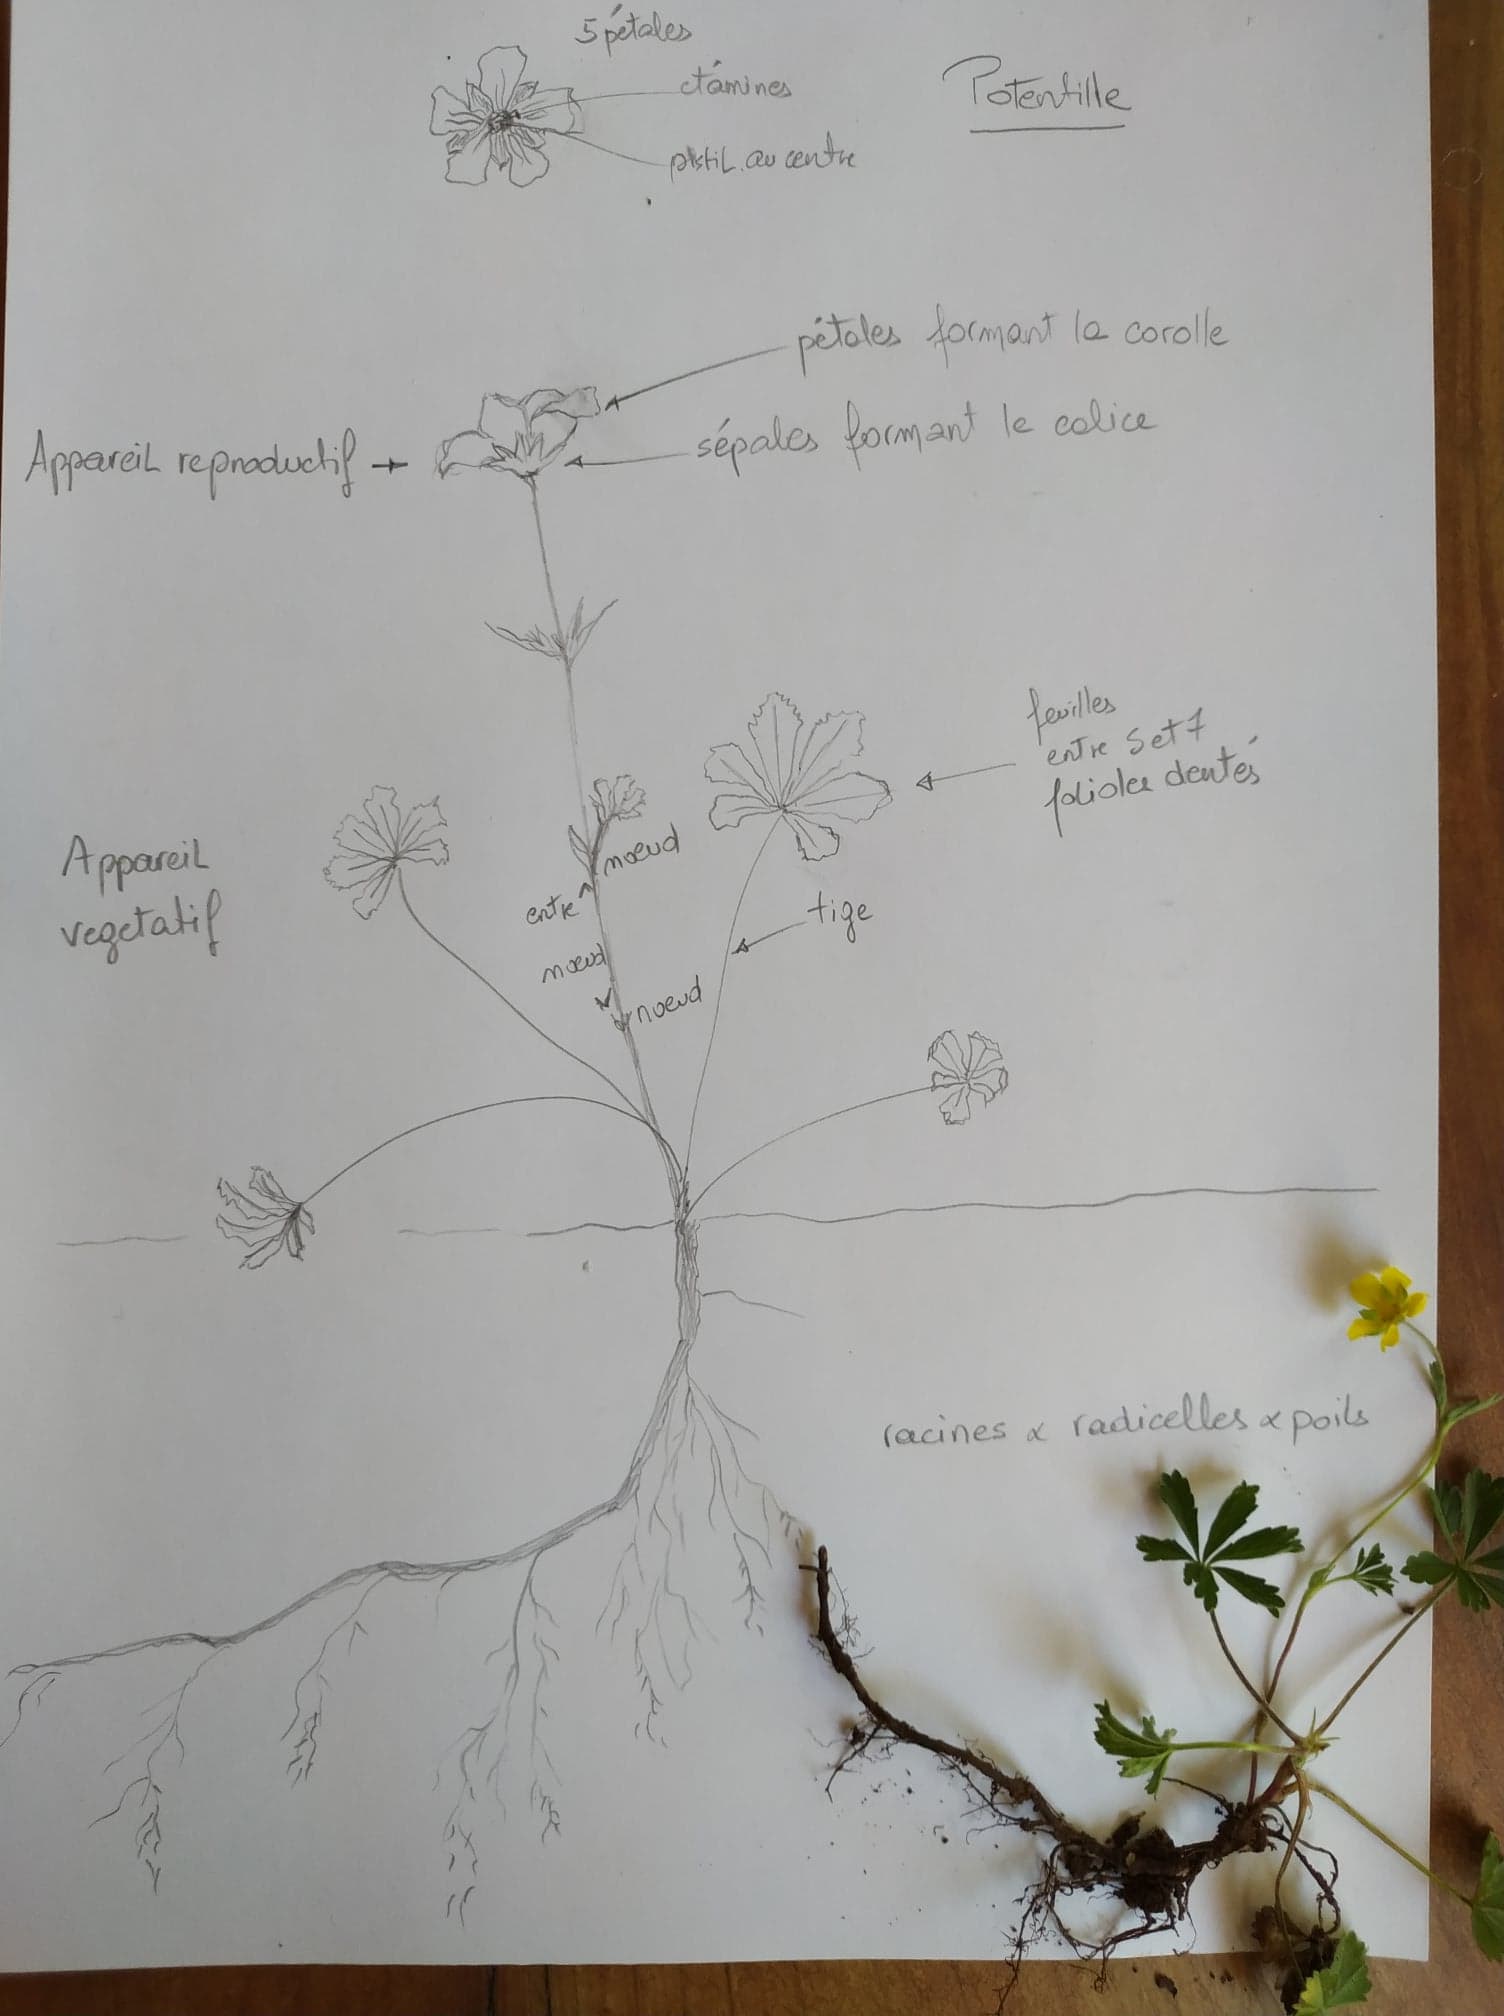 5 pétales
étamines
Potentille
pistil au centre
pétales formant la corolle
Appareil reproductif
sépales formant le calice
feuilles
entre 5 et 7
folioles dentés
Appareil
vegetatif
noeud
entre
noeud
tige
noeud
racines & radicelles & poils